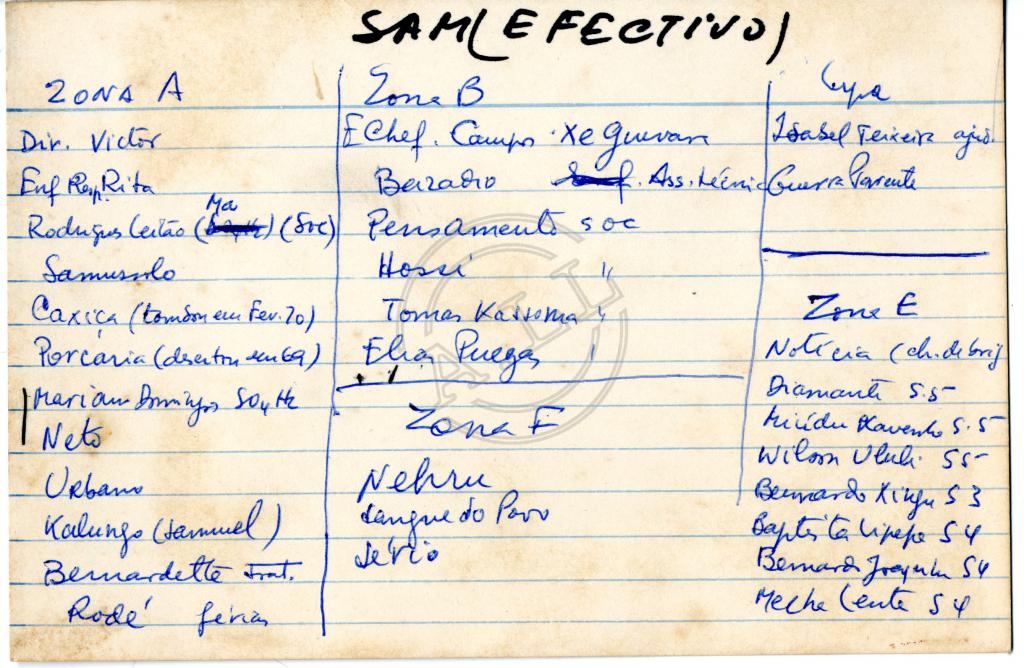 SAM (EFECTIVO)
ZONA A
Dir. Victor
Enf Resp. Rita
Ma
Rodrigues Leitão () (Soc)
Samussolo
Caxiça (tombou em Fev. 70)
Porcaria (desertou em 69)
Mariam Domingos
Neto
Urbano
Kalungo (Samuel)
Bernardette Trat.
Rodé férias
Zona B
Chef. Campo Xe Guevara
Bazadio Ass. técnic
Pensamento soc
Hossi "
Tomas Kassoma "
Elias "
Zona F
Nehru
Sangue do Povo
Sérvio
Isabel Teixeira ajud.
Guerra Parente
Zona E
Notícia (ch. de brig
Diamante S.5
S.5
Wilson S5
Bernardo Xingu S3
Baptista S4
Bernardo Joaquim S4
S4